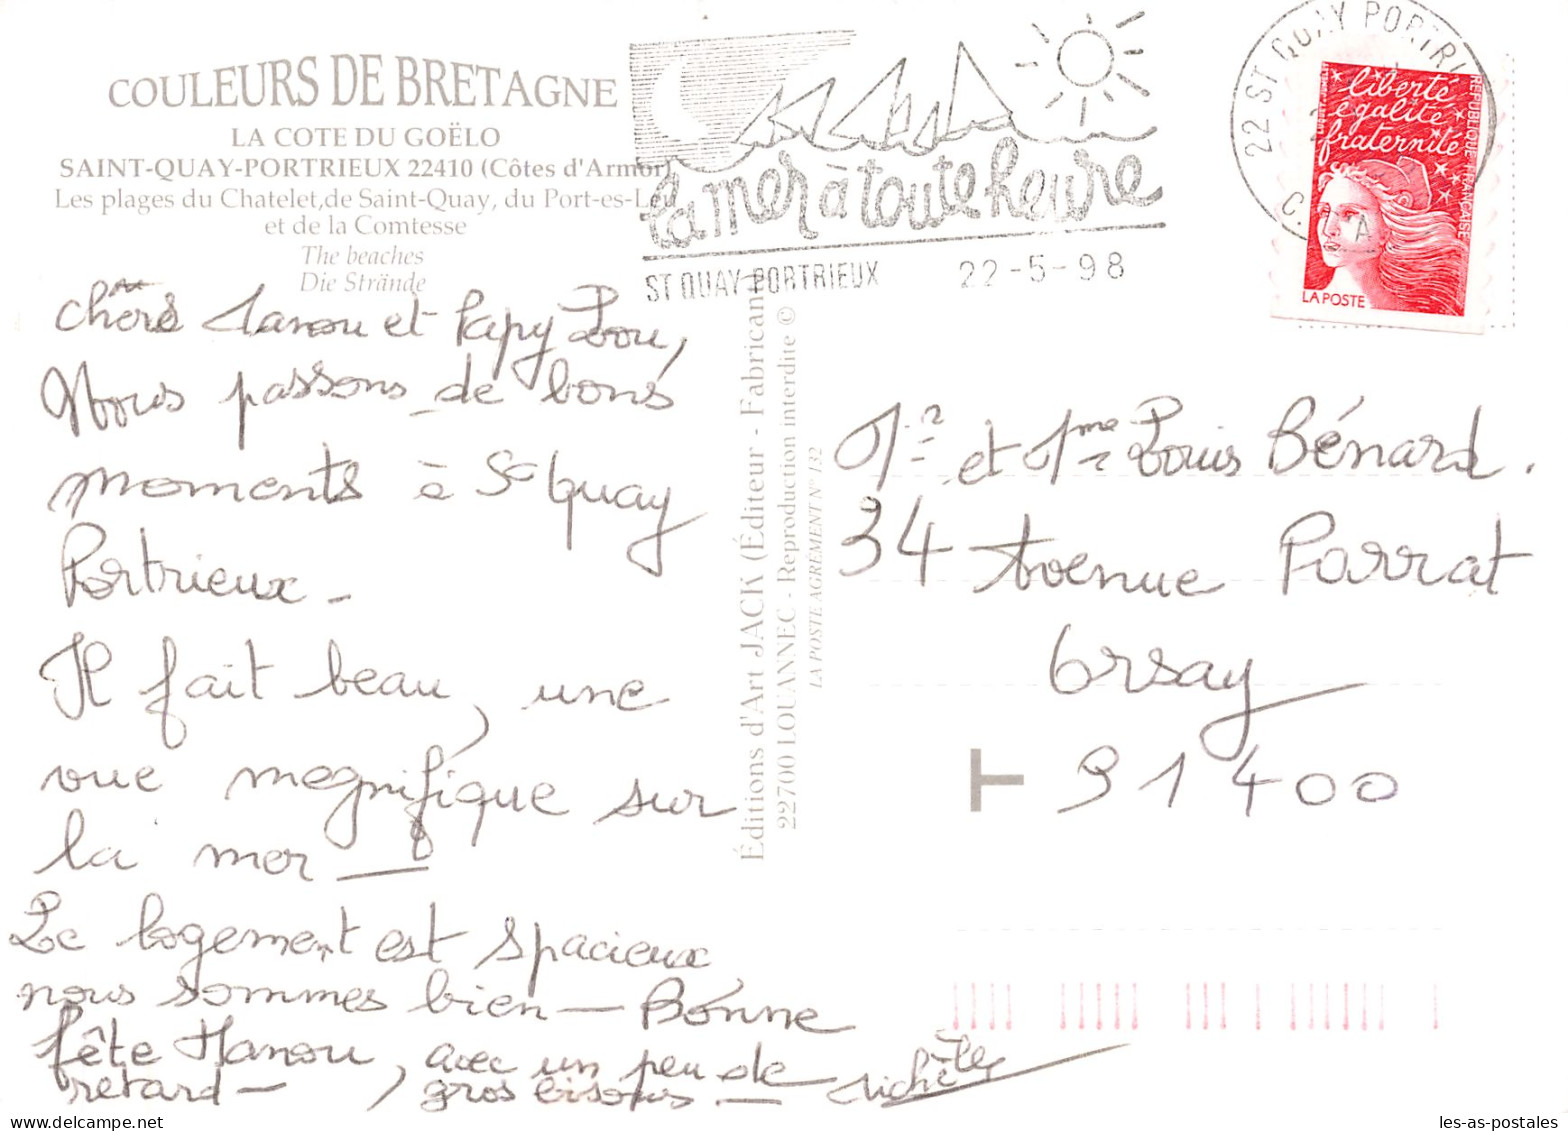 COULEURS DE BRETAGNE
LA COTE DU GOËLO
SAINT-QUAY-PORTRIEUX 22410 (Côtes d'Armor)
Les plages du Chatelet, de Saint-Quay, du Port-es-Leu
et de la Comtesse
The beaches
Die Strände
la mer à toute heure
ST QUAY-PORTRIEUX 22-5-98
22 ST QUAY PORTRIEUX
C. D'A
liberté
égalité
fraternité
RÉPUBLIQUE FRANÇAISE
LA POSTE
Chers Manou et Papy Lou,
Nous passons de bons
moments à St Quay
Portrieux -
Il fait beau, une
vue magnifique sur
la mer -
Le logement est spacieux
nous sommes bien - Bonne
fête Manou, avec un peu de
retard -, gros bisous - Michèle
Éditions d'Art JACK (Éditeur - Fabricant)
22700 LOUANNEC - Reproduction interdite ©
LA POSTE AGRÉMENT N° 132
Mr et Mme Louis Bénard.
34 Avenue Parrat
Orsay
T 91400
les-as-postales